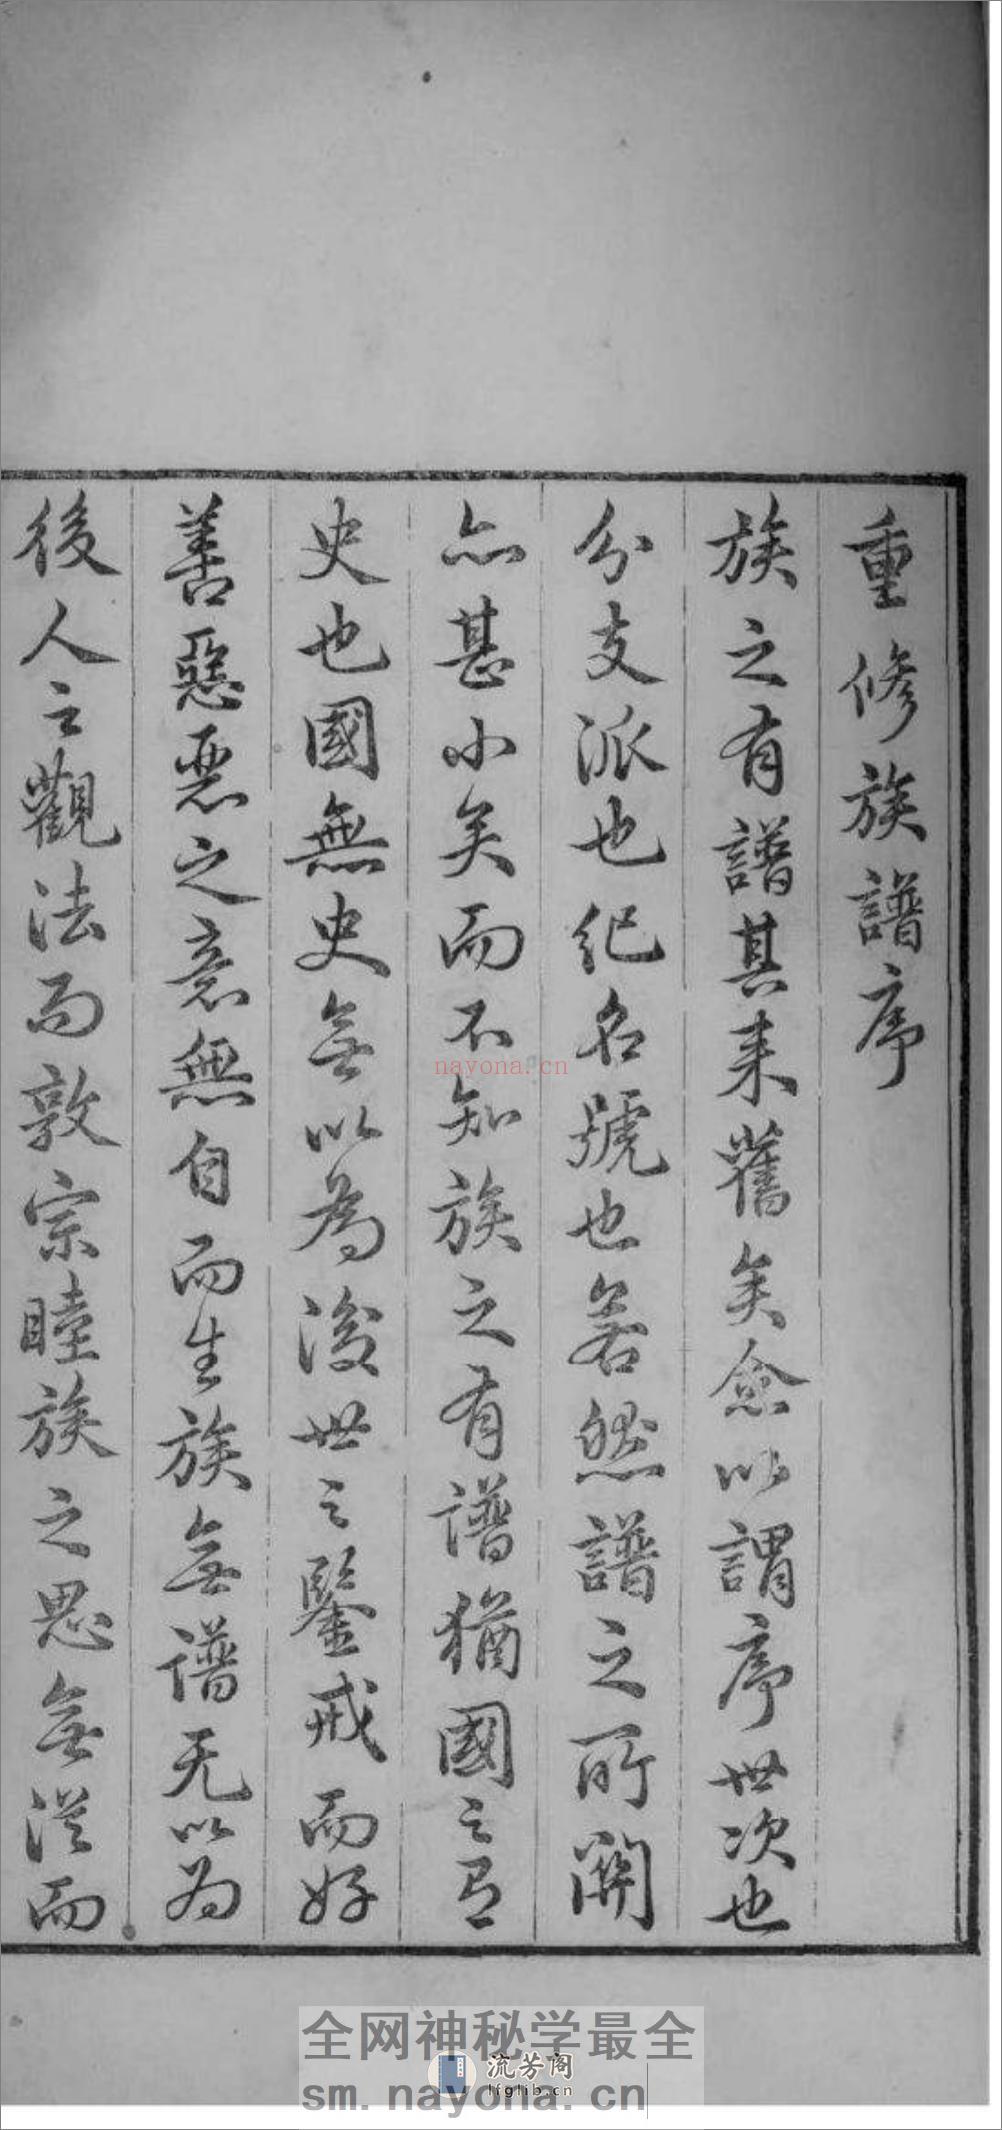 重修族譜序
族之有譜其来舊矣僉以謂序世次也
分支派也紀名號也若然譜之所關
亦甚小矣而不知族之有譜猶國之有
史也國無史無以為後世之鑒戒而好
善惡惡之意無自而生族無譜无以为
後人之觀法而敦宗睦族之思無從而
nayona.cn
全网神秘学最全
流芳阁
lfglib.cn
sm.nayona.cn